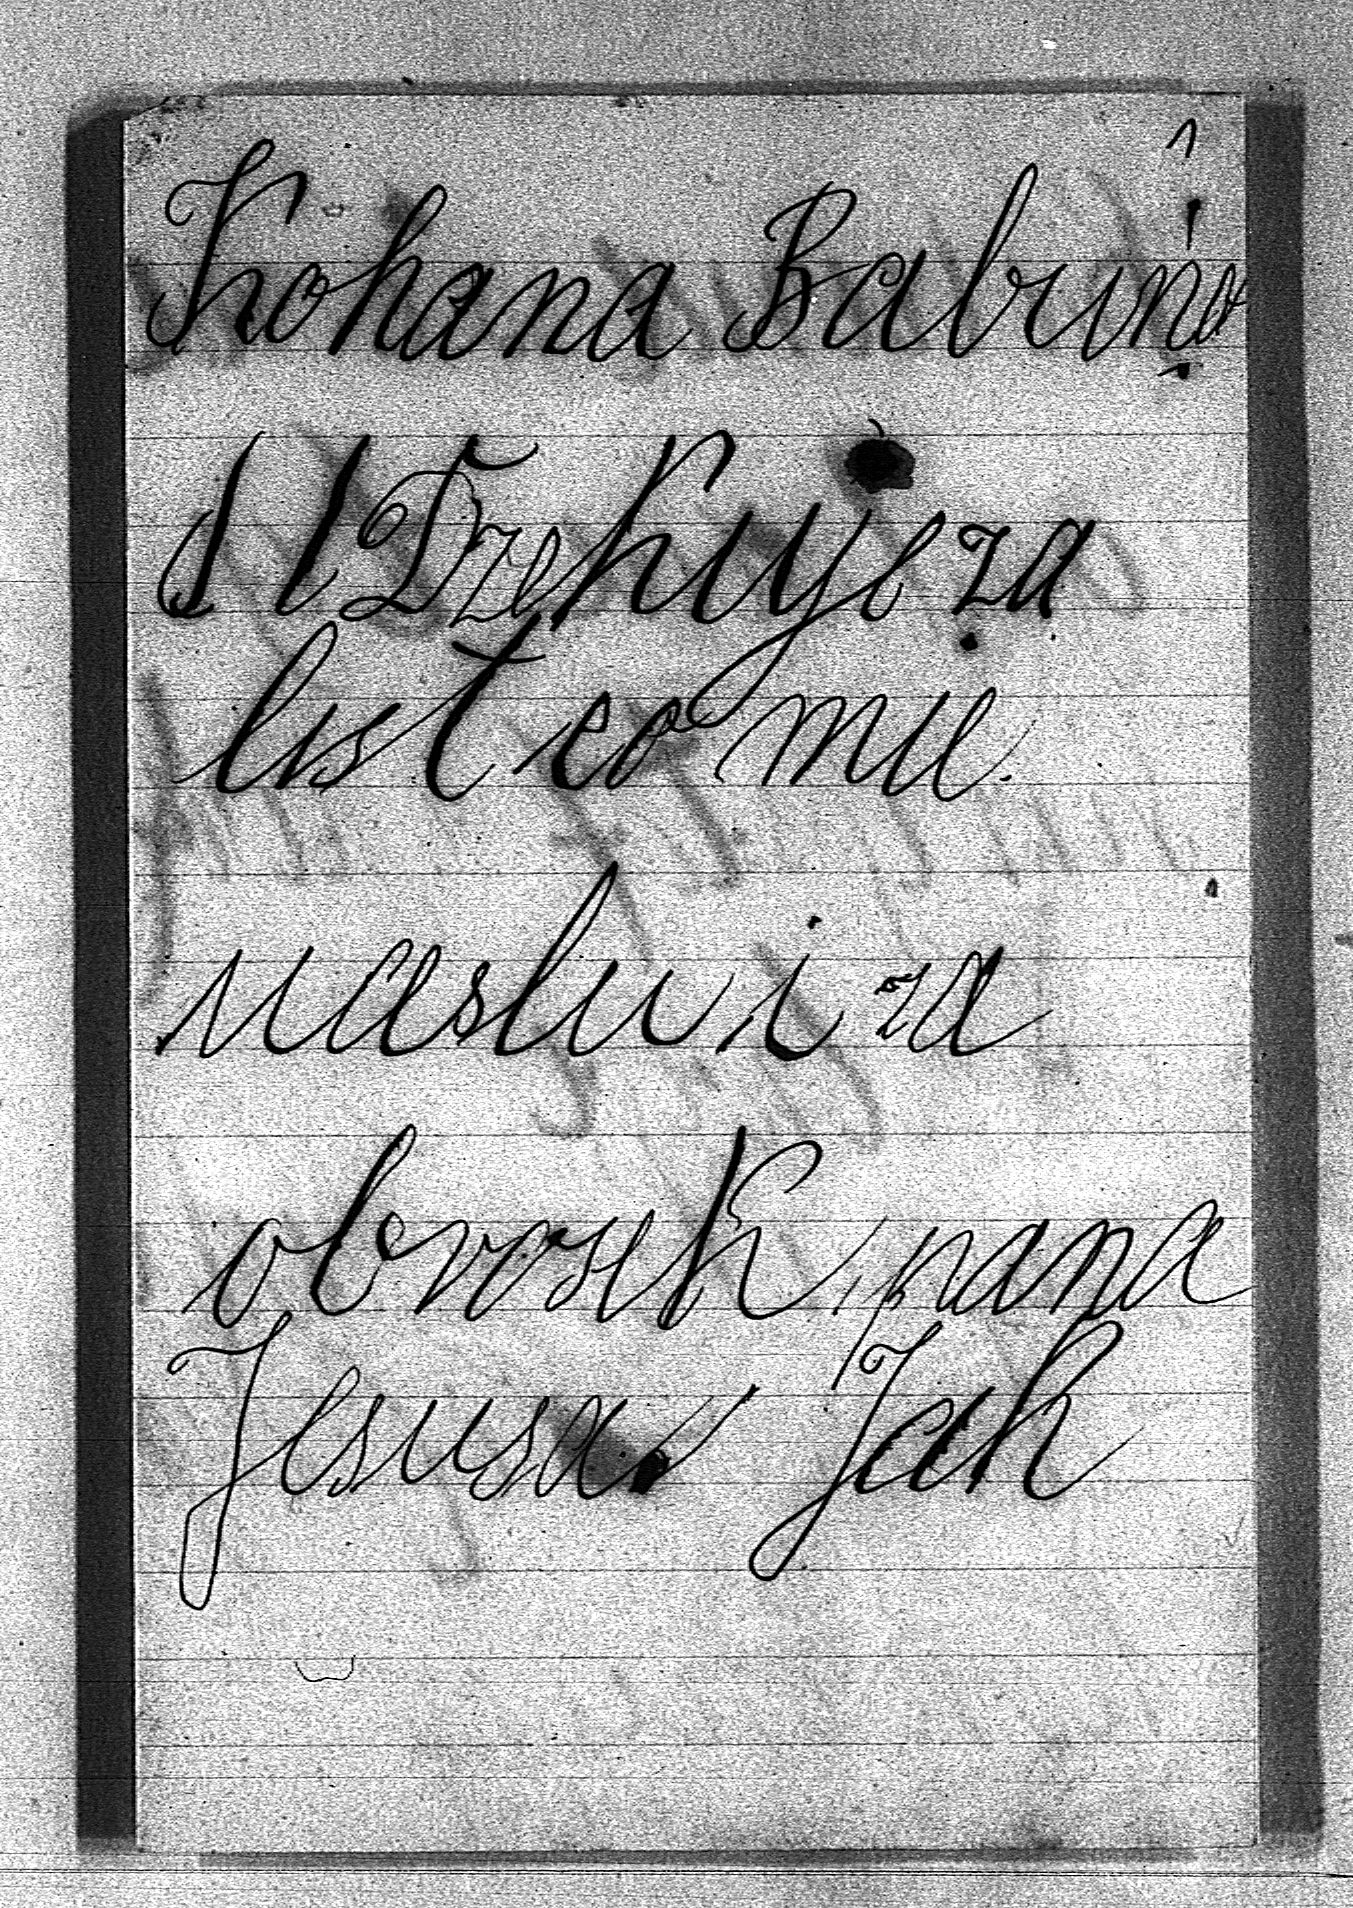 Kohana Babuna
!! Dzehuje za
list co mu
naslu i za
obrosek pana
Jesusa. Jak